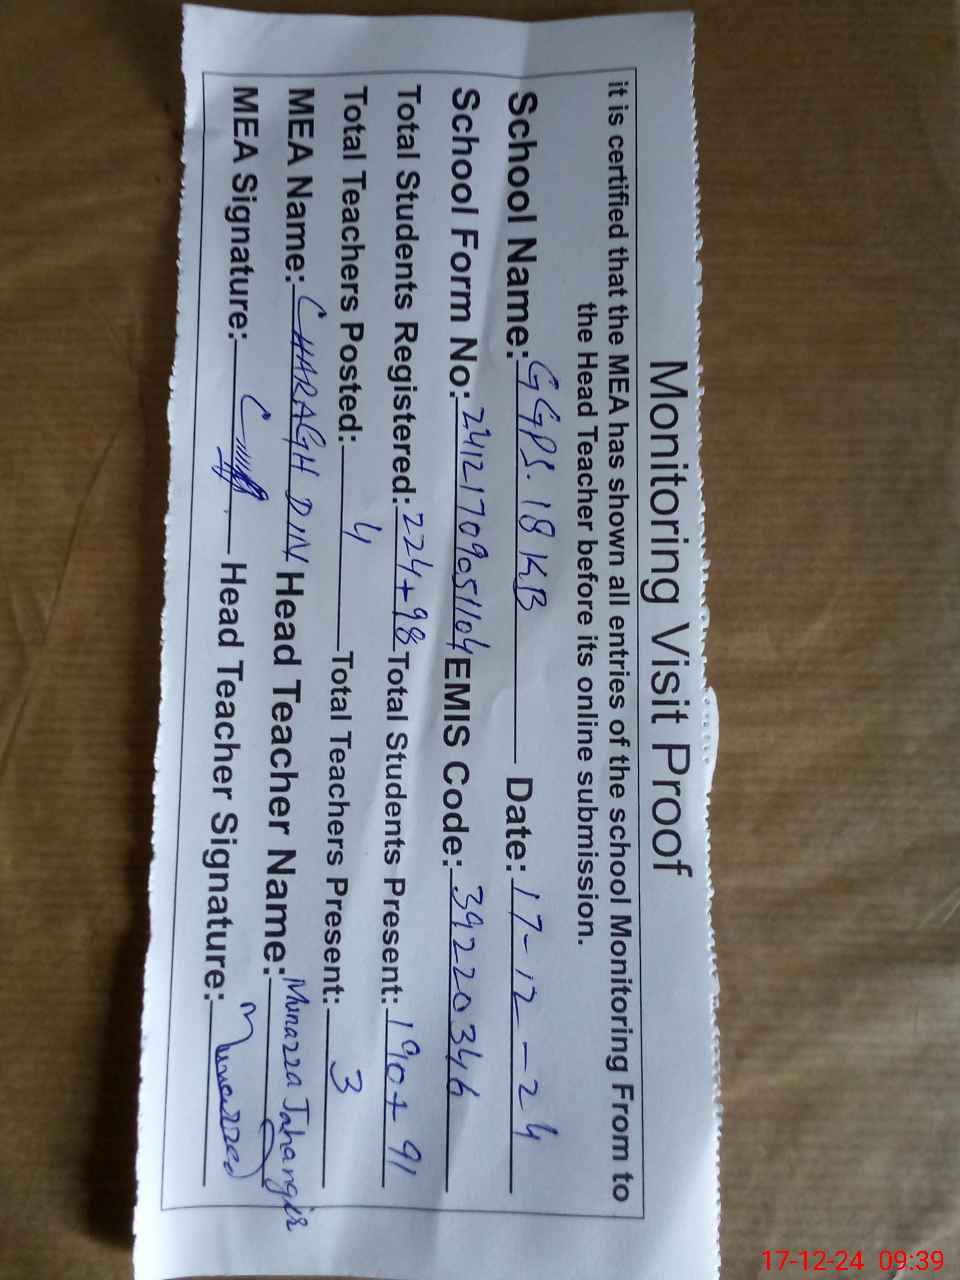 Monitoring Visit Proof
it is certified that the MEA has shown all entries of the school Monitoring From to
the Head Teacher before its online submission.
School Name: GGPS. 18 KB Date: 17-12-24
School Form No: 24121709051104 EMIS Code: 39220346
Total Students Registered: 224+98 Total Students Present: 190+91
Total Teachers Posted: 4 Total Teachers Present: 3
MEA Name: CHARAGH DIN Head Teacher Name: Munazza Jahangir
MEA Signature: Head Teacher Signature: Munazza
17-12-24 09:39